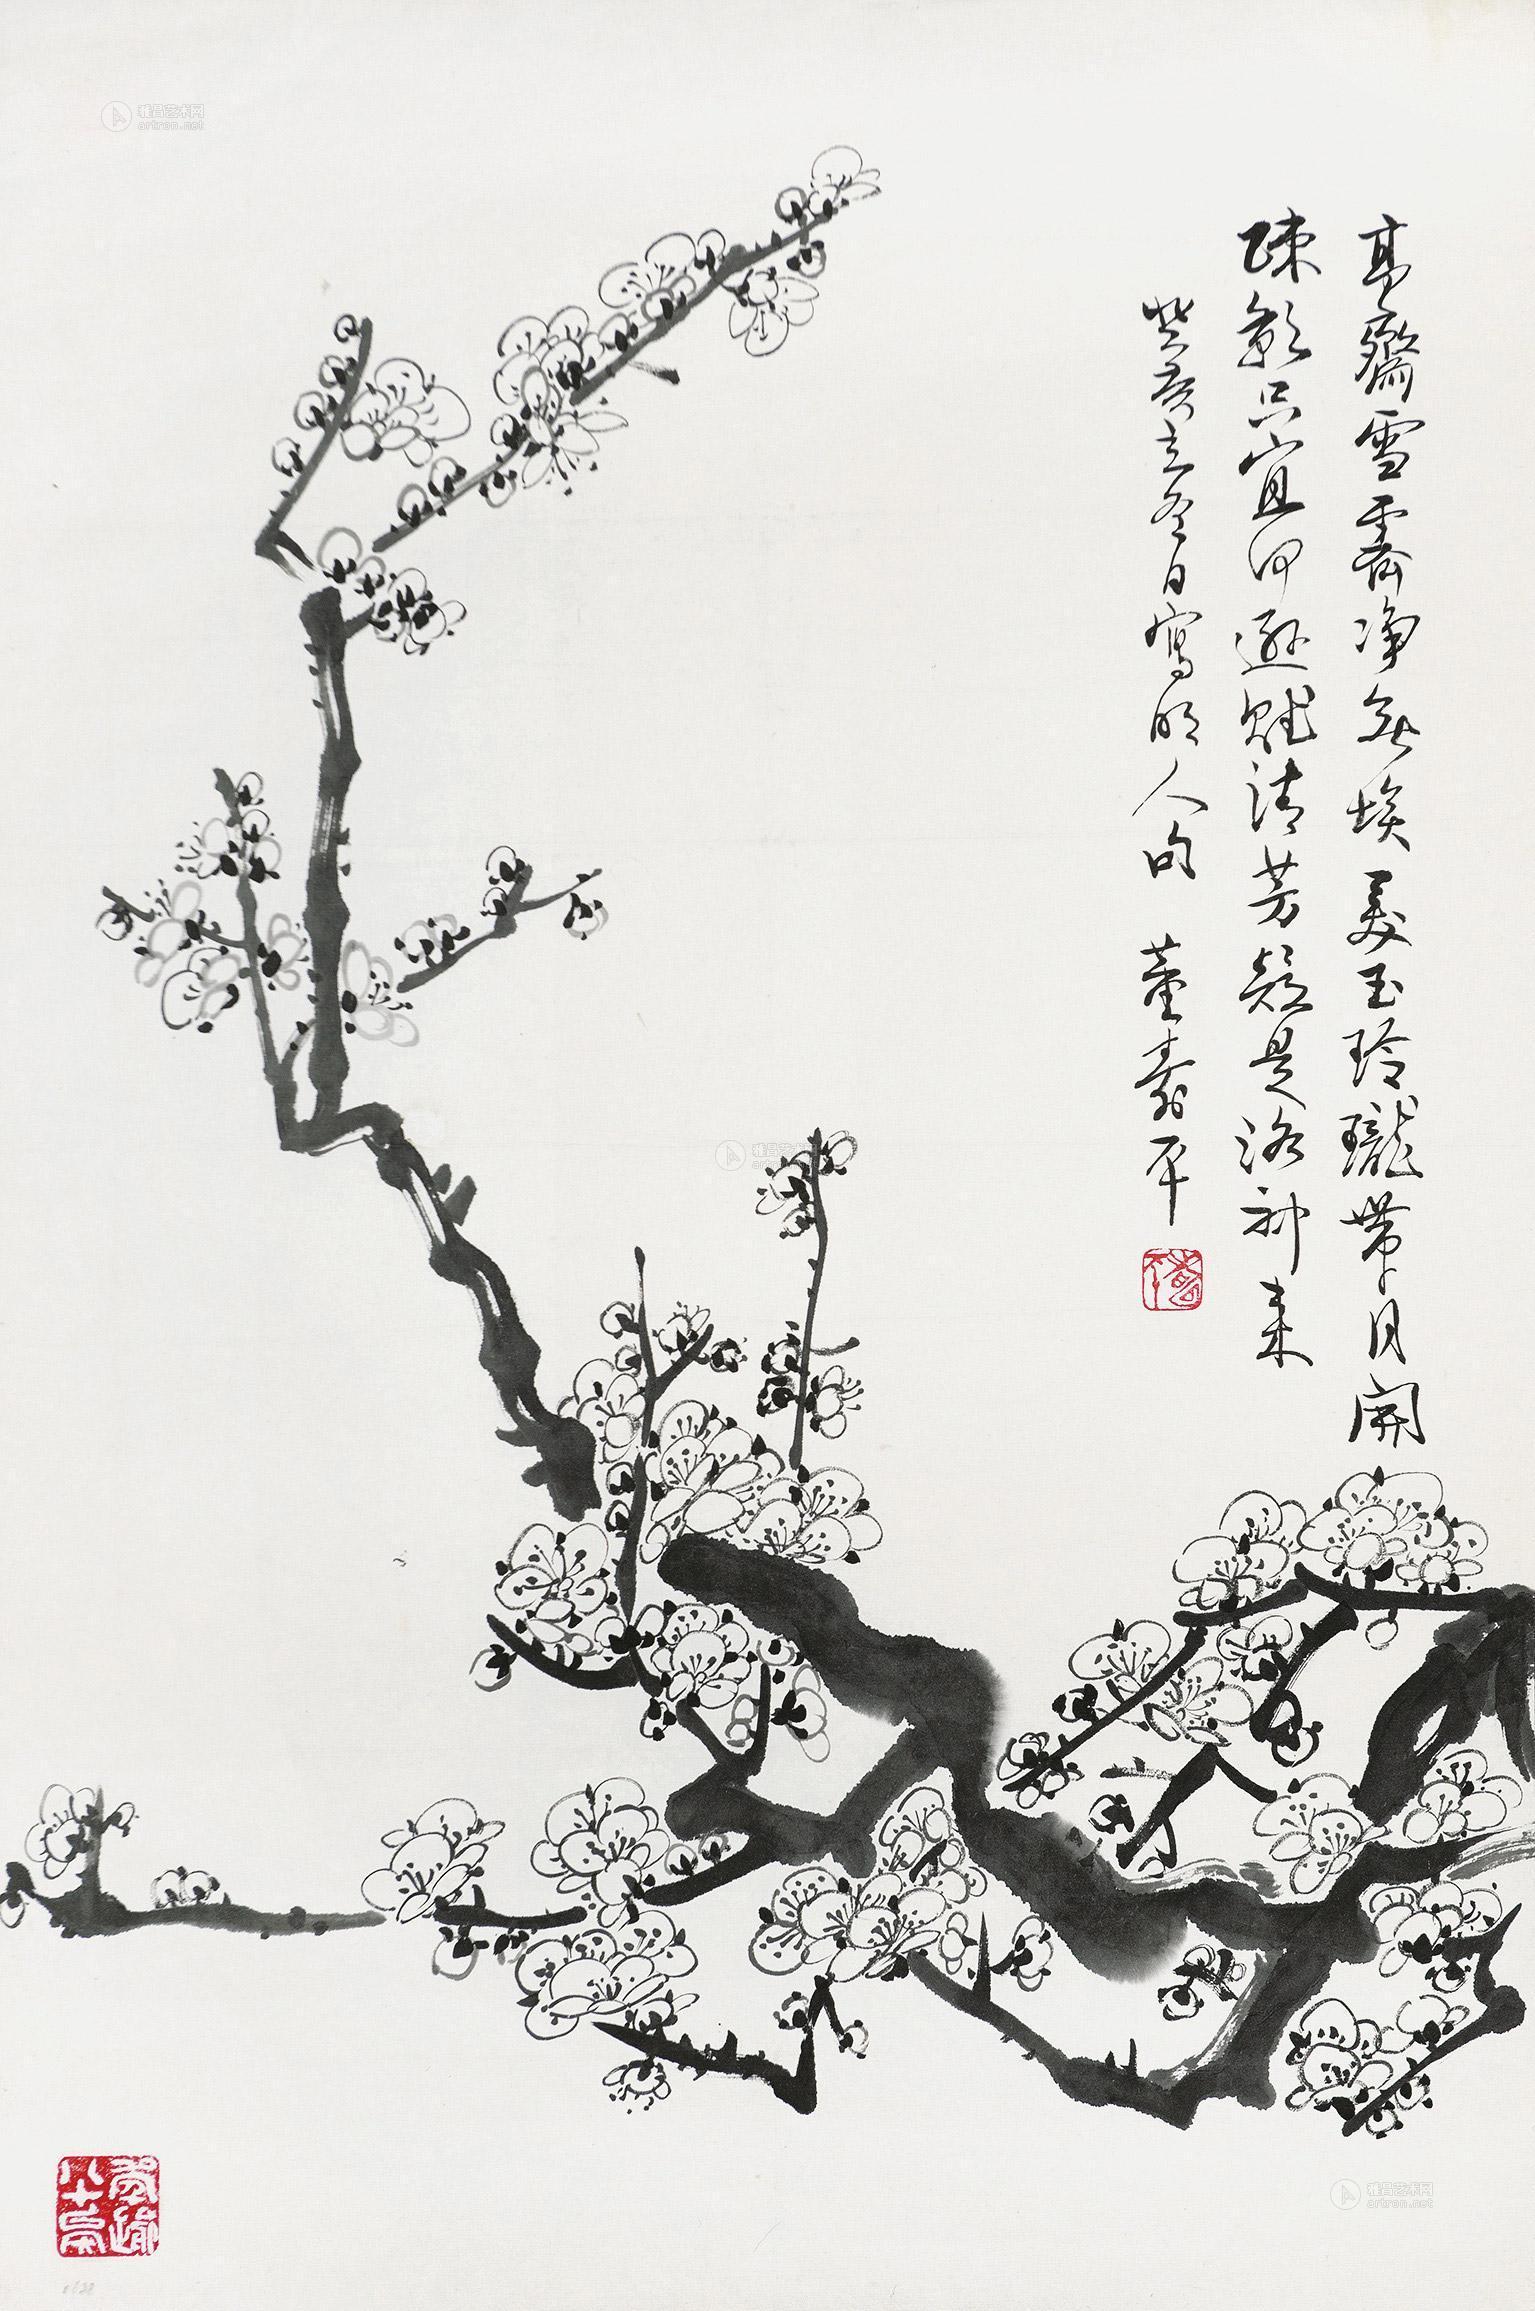 高齋雪霽净無埃美玉玲瓏帶月開
疎影只宜何遜賦清芳疑是洛神来
癸亥立冬日寫明人句 董壽平
董
壽逾
八十
雅昌艺术网
artron.net
雅昌艺术网
artron.net
雅昌艺术网
artron.net